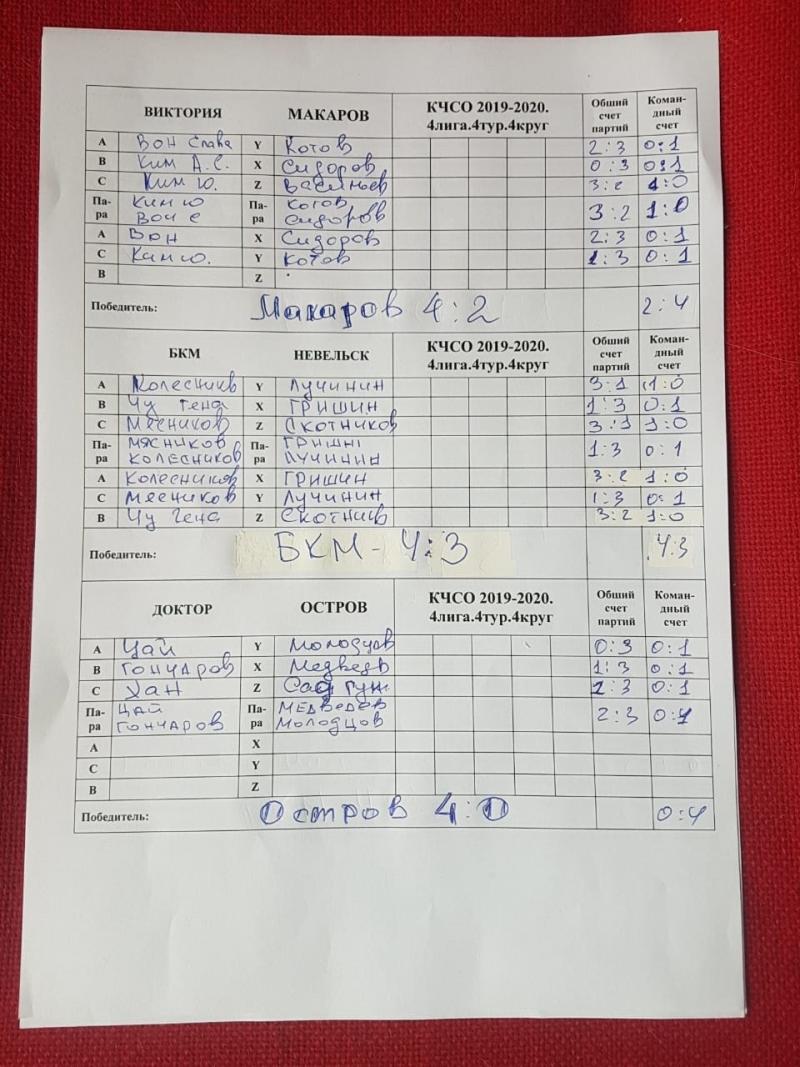 ВИКТОРИЯ МАКАРОВ КЧСО 2019-2020. 4лига.4тур.4круг Общий счет партий Коман-дный счет
A Вон Слава Y Котов 2:3 0:1
B Ким А.С. X Сидоров 0:3 0:1
C Ким Ю. Z Васильев 3:2 1:0
Па-ра Ким Ю Вон С Па-ра Котов Сидоров 3:2 1:0
A Вон X Сидоров 2:3 0:1
C Ким Ю. Y Котов 1:3 0:1
B Z
Победитель: Макаров 4:2 2:4
БКМ НЕВЕЛЬСК КЧСО 2019-2020. 4лига.4тур.4круг Общий счет партий Коман-дный счет
A Колесников Y Лучинин 3:1 1:0
B Чу Гена X Гришин 1:3 0:1
C Мясников Z Скотников 3:1 1:0
Па-ра Мясников Колесников Па-ра Гришин Лучинин 1:3 0:1
A Колесников X Гришин 3:2 1:0
C Мясников Y Лучинин 1:3 0:1
B Чу Гена Z Скотников 3:2 1:0
Победитель: БКМ - 4:3 4:3
ДОКТОР ОСТРОВ КЧСО 2019-2020. 4лига.4тур.4круг Общий счет партий Коман-дный счет
A Цай Y Молодцов 0:3 0:1
B Гончаров X Медведь 1:3 0:1
C Хан Z 2:3 0:1
Па-ра Цай Гончаров Па-ра Медведев Молодцов 2:3 0:1
A X
C Y
B Z
Победитель: Остров 4:0 0:4